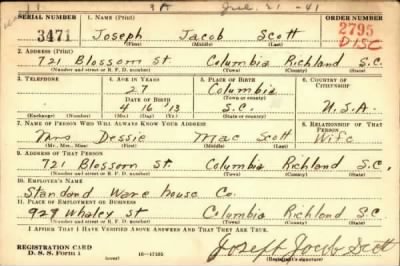 3A Jul. 21-41
SERIAL NUMBER 1. NAME (Print) ORDER NUMBER
3471 Joseph Jacob Scott 2795
(First) (Middle) (Last) DISC
2. ADDRESS (Print)
721 Blossom St Columbia Richland S.C.
(Number and street or R. F. D. number) (Town) (County) (State)
3. TELEPHONE 4. AGE IN YEARS 5. PLACE OF BIRTH 6. COUNTRY OF CITIZENSHIP
27 Columbia
DATE OF BIRTH (Town or county)
4 16 13 S.C. U.S.A.
(Exchange) (Number) (Mo.) (Day) (Yr.) (State or country)
7. NAME OF PERSON WHO WILL ALWAYS KNOW YOUR ADDRESS 8. RELATIONSHIP OF THAT PERSON
Mrs Dessie Mae Scott Wife
(Mr., Mrs., Miss) (First) (Middle) (Last)
9. ADDRESS OF THAT PERSON
721 Blossom St. Columbia Richland S.C.
(Number and street or R. F. D. number) (Town) (County) (State)
10. EMPLOYER'S NAME
Standard Ware house Co.
11. PLACE OF EMPLOYMENT OR BUSINESS
929 Whaley St Columbia Richland S.C.
(Number and street or R. F. D. number) (Town) (County) (State)
I AFFIRM THAT I HAVE VERIFIED ABOVE ANSWERS AND THAT THEY ARE TRUE.
REGISTRATION CARD
D. S. S. Form 1 (over) 16-17105 Joseph Jacob Scott
(Registrant's signature)